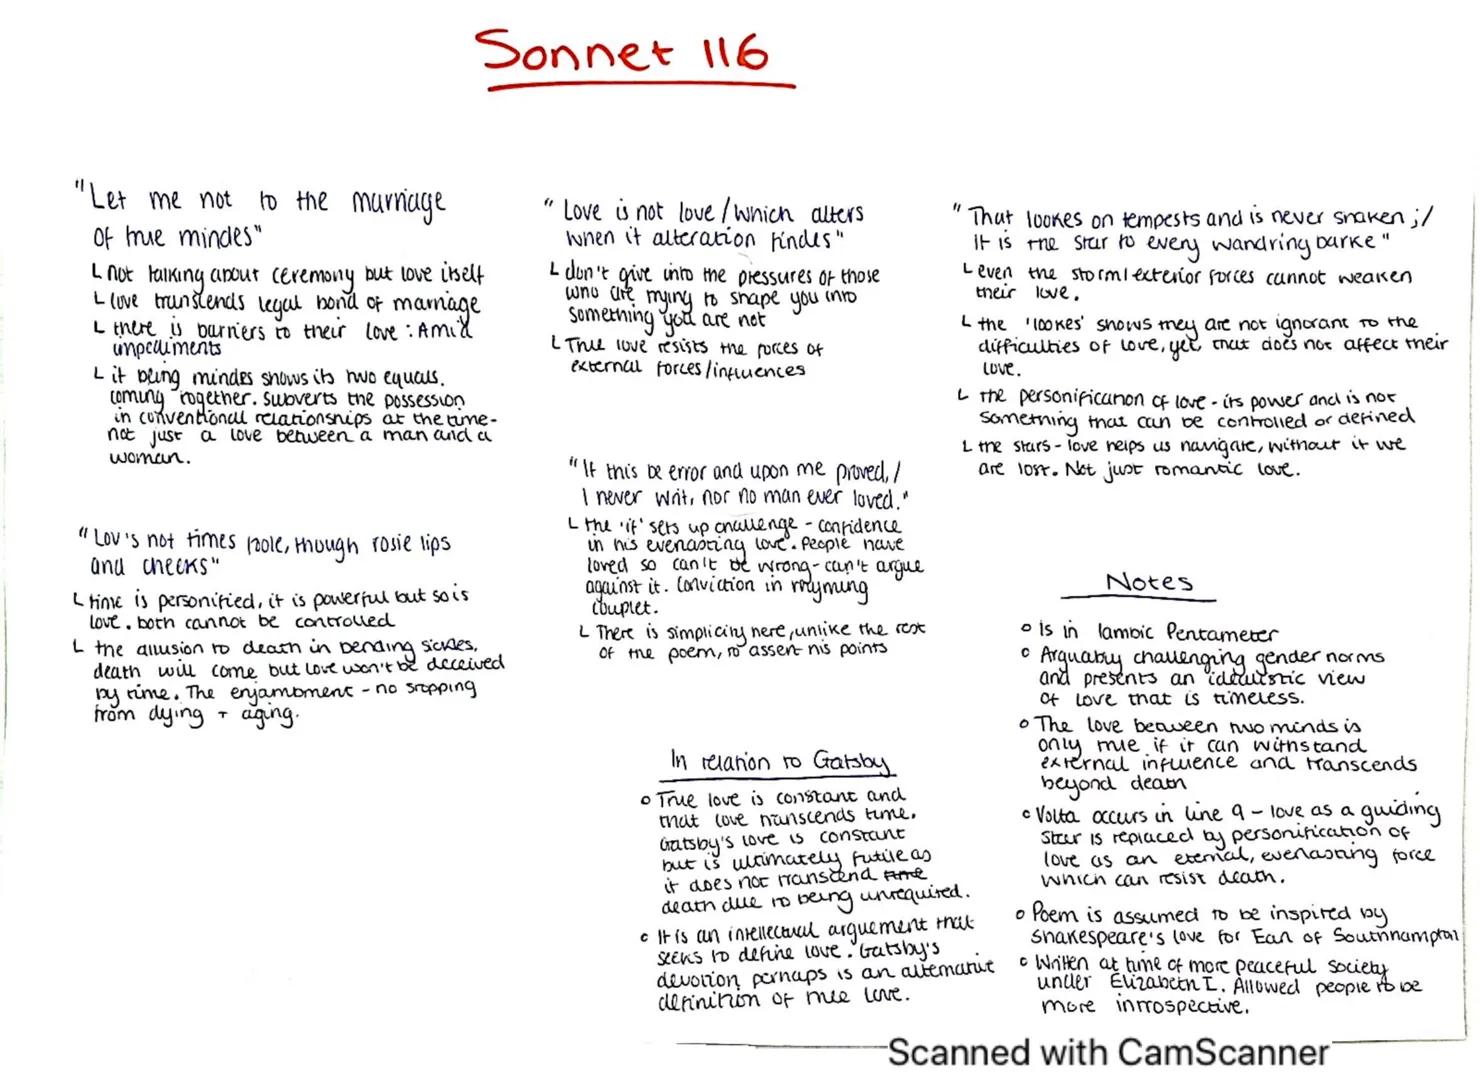 Sonnet 116
"Let me not to the marriage
of true mindes"
L not talking about ceremony but love itself
L love transcends legal bond of marriage
L there is barriers to their love : Amid
impediments
L it being mindes shows its two equals.
coming together. Subverts the possession
in conventional relationships at the time-
not just a love between a man and a
woman.
"Lov's not times foole, though rosie lips
and cheeks"
L time is personified, it is powerful but so is
love. both cannot be controlled
L the allusion to death in bending sickles,
death will come but love won't be deceived
by time. The enjambment - no stopping
from dying + aging.
"Love is not love / which alters
when it alteration findes"
L don't give into the pressures of those
who are trying to shape you into
something you are not
L True love resists the forces of
external forces/influences
"If this be error and upon me proved, /
I never writ, nor no man ever loved."
L the 'if' sets up challenge - confidence
in his everlasting love. People have
loved so can't be wrong - can't argue
against it. Conviction in rhyming
couplet.
L There is simplicity here, unlike the rest
of the poem, to assert his points
In relation to Gatsby
o True love is constant and
that love transcends time.
Gatsby's love is constant
but is ultimately futile as
it does not transcend time
death due to being unrequited.
o It is an intellectual arguement that
seeks to define love. Gatsby's
devotion perhaps is an alternative
definition of true love.
"That lookes on tempests and is never shaken ; /
It is the star to every wandring barke"
L even the storm/exterior forces cannot weaken
their love.
L the 'lookes' shows they are not ignorant to the
difficulties of love, yet that does not affect their
love.
L the personification of love - its power and is not
something that can be controlled or defined
L the stars - love helps us navigate, without it we
are lost. Not just romantic love.
Notes
o Is in Iambic Pentameter
o Arguably challenging gender norms
and presents an idealistic view
of love that is timeless.
o The love between two minds is
only true if it can withstand
external influence and transcends
beyond death
o Volta occurs in line 9 - love as a guiding
star is replaced by personification of
love as an eternal, everlasting force
which can resist death.
o Poem is assumed to be inspired by
Shakespeare's love for Earl of Southhampton
o Written at time of more peaceful society
under Elizabeth I. Allowed people to be
more introspective.
Scanned with CamScanner